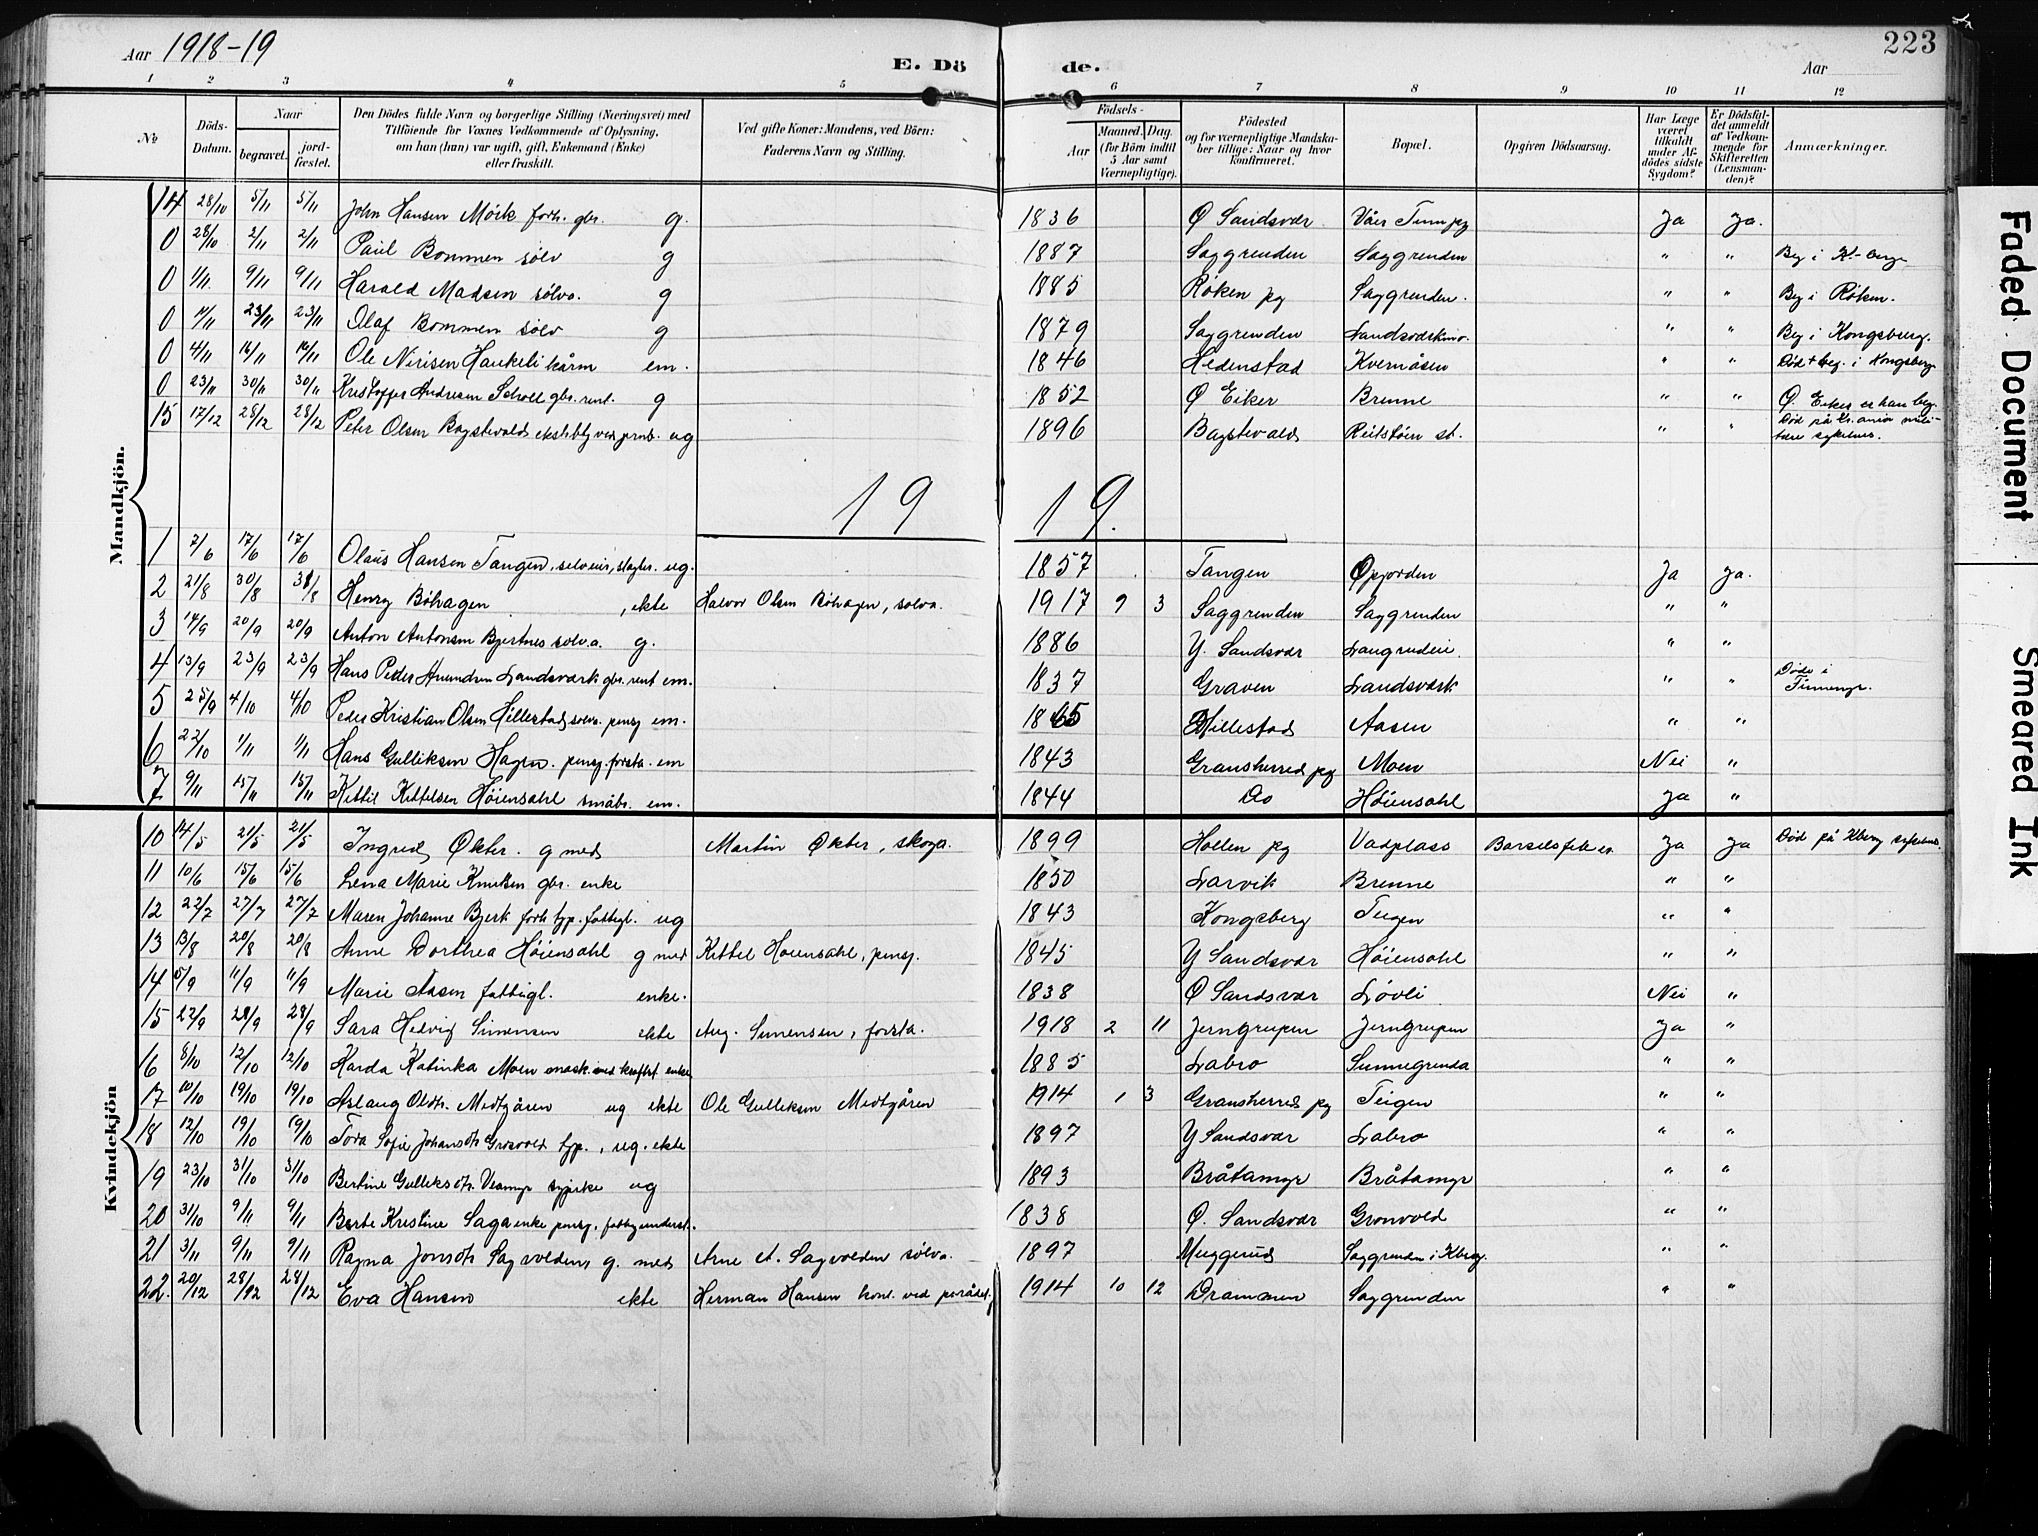 Aar 1918-19
E. Dö de.
Aar
223
1 2 3 4 5 6 7 8 9 10 11 12
№
Döds-Datum.
Naar
begravet.
jord-fæstet.
Den Dödes fulde Navn og borgerlige Stilling (Næringsvei) med
Tilföiende for Voxnes Vedkommende af Oplysning,
om han (hun) var ugift, gift, Enkemand (Enke)
eller fraskilt.
Ved gifte Koner: Mandens, ved Börn:
Faderens Navn og Stilling.
Födsels-
Aar
Maaned. Dag.
(for Börn indtil
5 Aar samt
Værnepligtige).
Födested
og for værnepligtige Mandska-
ber tillige: Naar og hvor
Konfirmeret.
Bopæl.
Opgiven Dödsaarsag.
Har Læge
været
tilkaldt
under Af-
dödes sidste
Sygdom?
Er Dödsfal-
det anmeldt
af Vedkom-
mende for
Skifteretten
(Lensman-
den)?
Anmærkninger.
Mandkjön.
14 28/10 5/11 5/11 John Hansen Mörk forh. gbr. g. 1836 Ø Sandsvær Ja Ja.
0 28/10 2/11 2/11 Paul Bommen sølv g 1887 Saggrenden Saggrenden " " Beg i K-berg
0 1/11. 9/11 9/11 Harald Madsen sølva. g 1885 Røken pg Saggrenden. " " Beg i Røken.
0 23/11 23/11 Olaf Bommen sølv g 1879 Saggrenden " " Beg i Kongsberg.
0 4/11 Ole Nirisen Haukeli kårm em. 1846 Hedenstad Kvernåsen " " Død + beg. i Kongsberg
0 23/11 30/11 30/11 Kristoffer Andresen gbr. g 1852 Ø Eiker Brenne " " Ø. Eiker er han beg.
15 17/12 28/12 28/12 Peter Olsen ug 1896 " "
19 19.
1 2/6 17/6 17/6 Olaus Hansen Tangen, selveier, ug. 1857 Tangen Opjorden Ja Ja.
2 21/8 30/8 Henry Böhagen, ekte Halvor Olsen Böhagen, sølva. 1917 9 3 Saggrenden Saggrenden " "
3 14/9 20/9 20/9 Anton Antonsen Bjertnes sølv.a. g. 1886 Y. Sandsvær " "
4 13/9 23/9 23/9 Hans Peder Landsværk gbr. em. 1837 Graven Landsværk " " Døde i
5 25/9 4/10 4/10 Peder Kristian Olsen Hillestad sølva. pensj em. Hillestad Aasen " "
6 22/10 1/11 1/11 Hans Gulliksen Hagen. pensj. forsta. em 1843 Gransherred pg Moen Nei "
7 9/11 15/11 15/11 Kittil Kittelsen Höiensahl småbr. em. 1844 Do Höiensahl Ja "
Kvindekjön
10 14/5 21/5 21/5 Ingrid Økter. g med Martin Økter, skoga. 1899 Hollen pg Vadplass Barselsfeber Ja Ja Død på Kberg
11 10/6 15/6 15/6 Lena Marie Knutsen gbr. enke 1850 Larvik Brenne " "
12 22/7 27/7 27/7 Maren Johanne Bjerk forh. typ. fattigl. ug 1843 Kongsberg Teigen " "
13 13/8 20/8 20/8 Anne Dorthea Höiensahl g med Kittel Höiensahl, pensj. 1845 Y Sandsvær Höiensahl " "
14 5/9 11/9 11/9 Marie Aasen fattigl. enke. 1838 Ø Sandsvær Løvli Nei "
15 22/9 28/9 28/9 Sara Hedvig Simensen ekte Aug. Simensen, forsta. 1918 2 11 Jerngrupen Jerngrupen Ja "
16 8/10 12/10 12/10 Harda Katinka Moen enke 1885 Labro Sunnegrenda " "
17 10/10 19/10 19/10 Aslaug Oldtr. Midtgåren ug ekte Ole Gulliksen Midtgåren 1914 1 3 Gransherred pg Teigen " "
18 12/10 19/10 19/10 Tora Sofie Johansdtr. Grosvold typ., ug. ekte 1897 Y Sandsvær Labro " "
19 23/10 31/10 31/10 Bertine Gulleksdtr. ug 1893 Bråtamyr Bråtamyr " "
20 31/10 9/11 9/11 Berte Kristine Saga enke pensj. fattigunderst. 1838 Ø. Sandsvær Gronvold " "
21 3/11 9/11 9/11 Ragna Jonsdtr Sagvolden, g. med Arne A. Sagvolden sølva. 1897 Muggerud Saggrenden i Kberg. " "
22. 20/12 28/12 28/12 Eva Hansen ekte Herman Hansen kont. ved 1914 10 12 Drammen Saggrenden " "
Faded Document
Smeared Ink